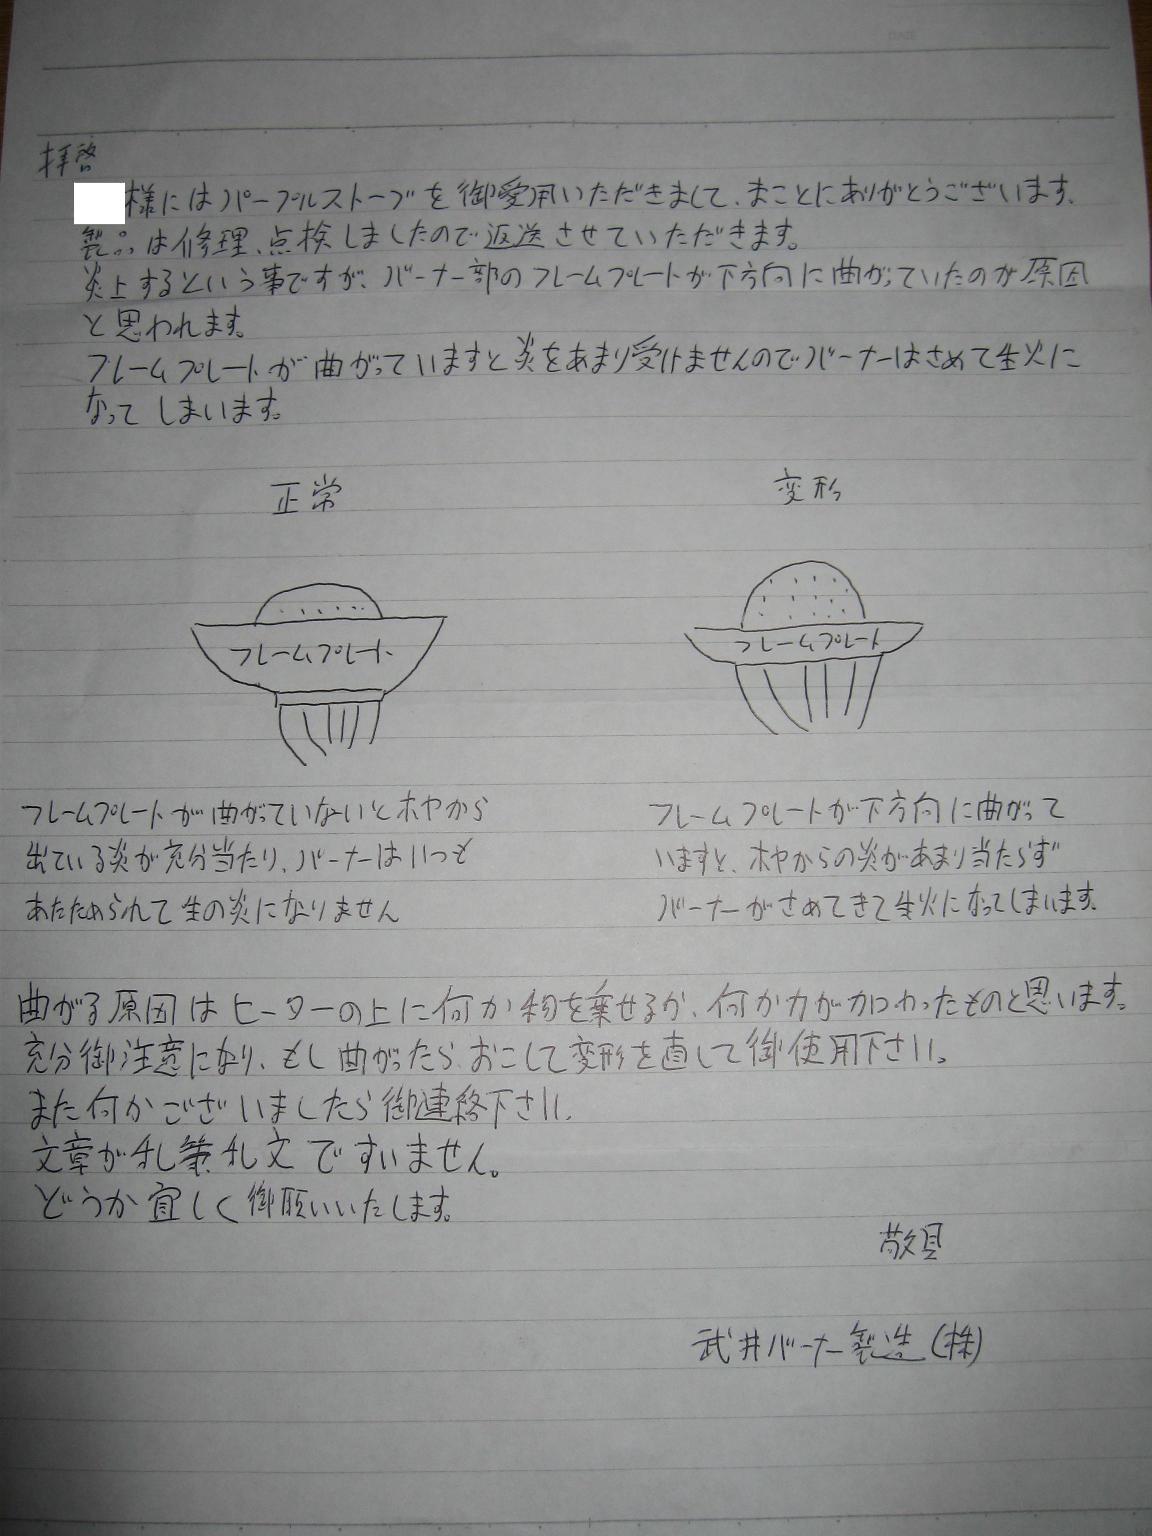 拝啓
様にはパープルストーブを御愛用いただきまして、まことにありがとうございます。
製品は修理、点検しましたので返送させていただきます。
炎上するという事ですが、バーナー部のフレームプレートが下方向に曲がっていたのが原因
と思われます。
フレームプレートが曲がっていますと炎をあまり受けませんのでバーナーはさめて生火に
なってしまいます。
正常
変形
フレームプレート
フレームプレート
フレームプレートが曲がっていないとホヤから
出ている炎が充分当たり、バーナーはいつも
あたためられて生の炎になりません
フレームプレートが下方向に曲がって
いますと、ホヤからの炎があまり当たらず
バーナーがさめてきて生火になってしまいます。
曲がる原因はヒーターの上に何か物を乗せるか、何か力が加わったものと思います。
充分御注意になり、もし曲がったら、おこして変形を直して御使用下さい。
また何かございましたら御連絡下さい。
文章が乱筆乱文ですいません。
どうか宜しく御願いいたします。
敬具
武井バーナー製造(株)